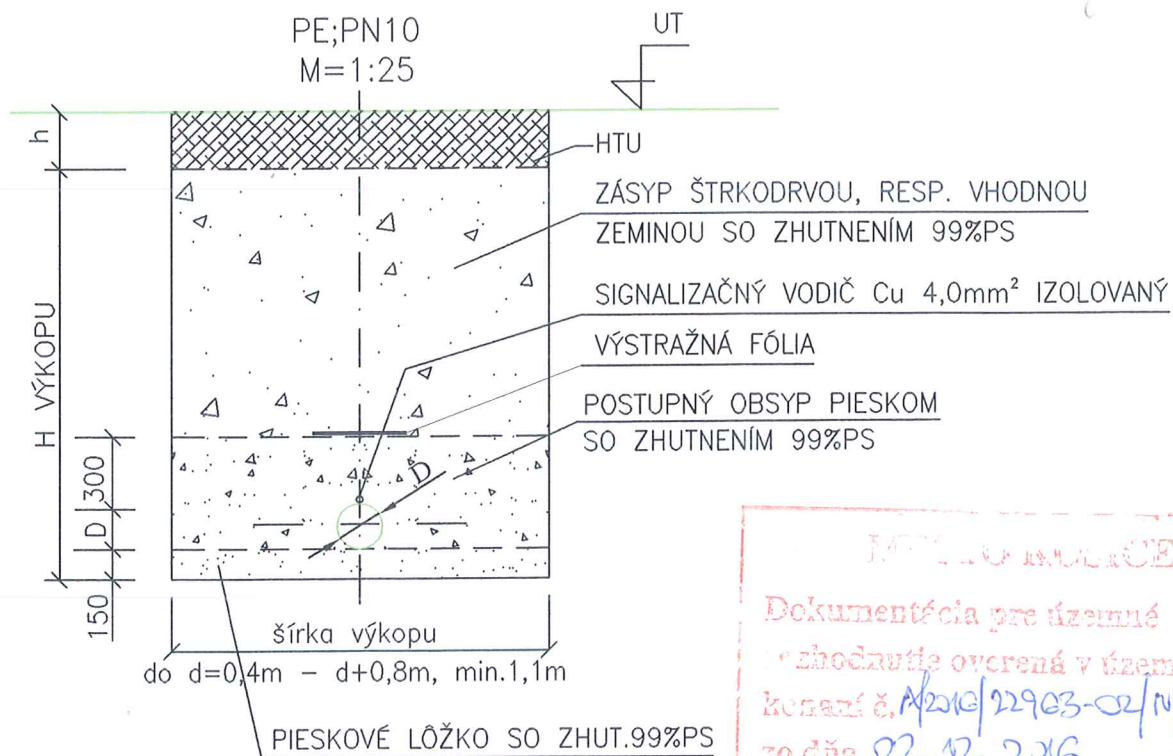 PE;PN10
M=1:25
UT
h
HTU
ZÁSYP ŠTRKODRVOU, RESP. VHODNOU
ZEMINOU SO ZHUTNENÍM 99%PS
SIGNALIZAČNÝ VODIČ Cu 4,0mm² IZOLOVANÝ
VÝSTRAŽNÁ FÓLIA
POSTUPNÝ OBSYP PIESKOM
SO ZHUTNENÍM 99%PS
H VÝKOPU
300
D
D
150
šírka výkopu
do d=0,4m – d+0,8m, min.1,1m
PIESKOVÉ LÔŽKO SO ZHUT.99%PS
Dokumentácia pre územné
overená v územ
konaní č. A/2016/22963-02/
zo dňa 02.12.2016